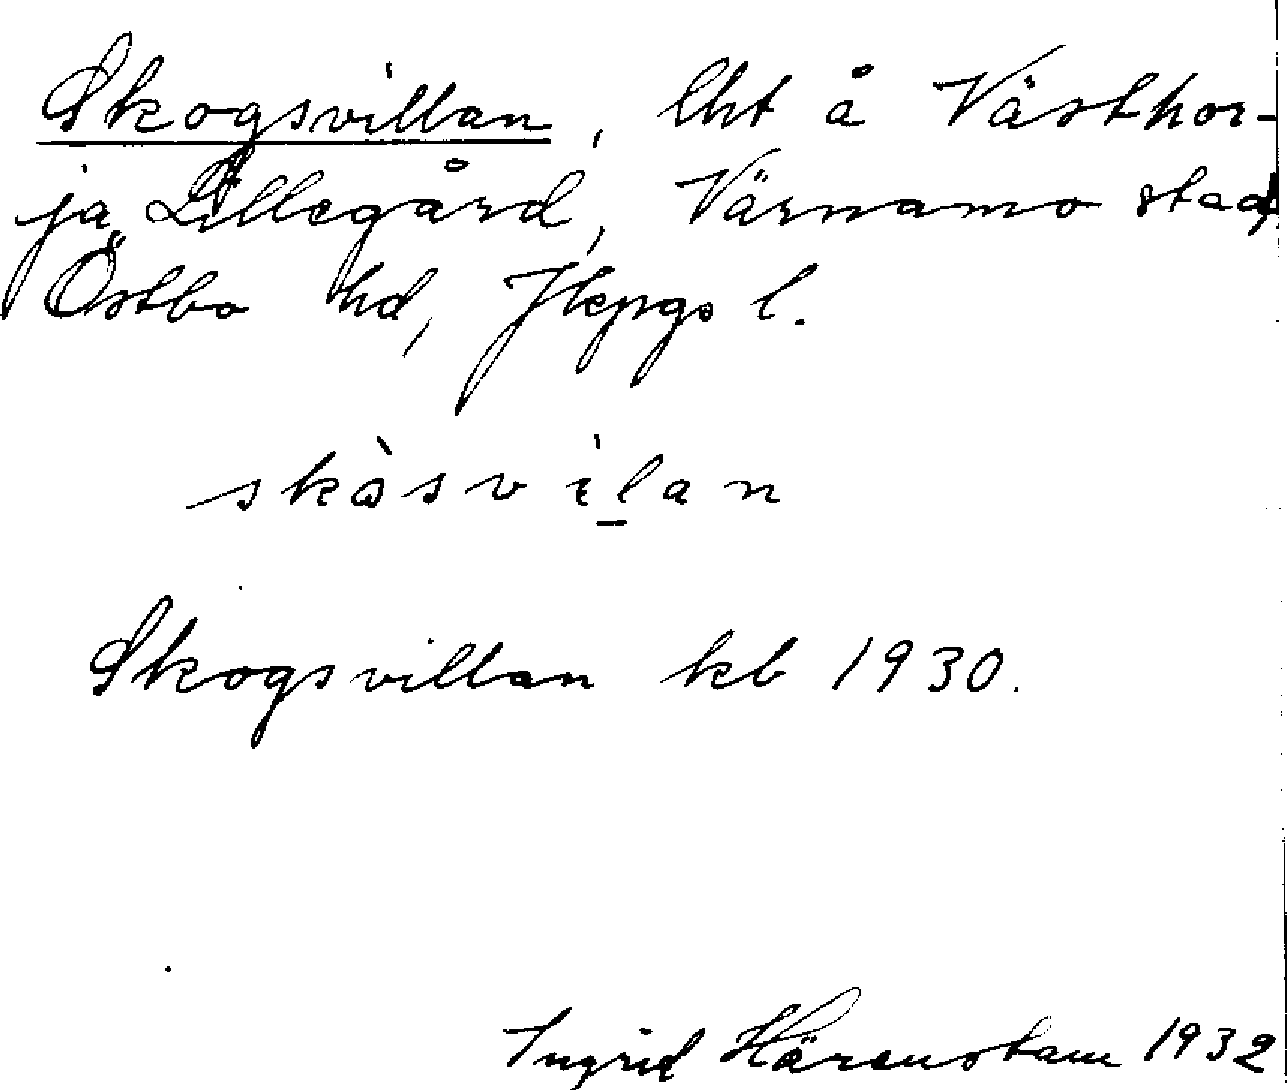 Skogsvillan, lht å Västhor-
ja Lillegård, Värnamo stad,
Östbo hd, Jkpgs l.
skòsvìlan
Skogsvillan kb 1930.
Ingrid Härenstam 1932